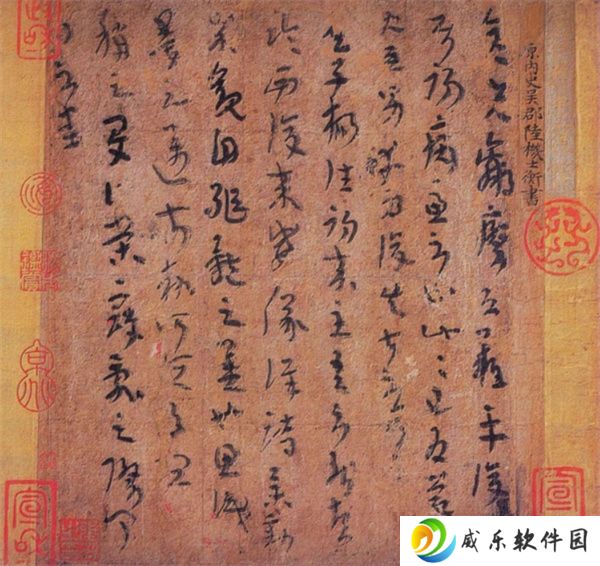 原内史吳郡陸機士衡書
彦先羸瘵恐難平復
往屬初病慮不止此此已為慶
承使唯男幸為復失前憂耳
吳子楊往初來主吾不能盡
臨西復來威儀詳跱舉動
成觀自軀體之美也思識
量之邁前執所恒有宜
稱之夏伯榮寇亂之際聞
問不悉
宣和
威乐软件园